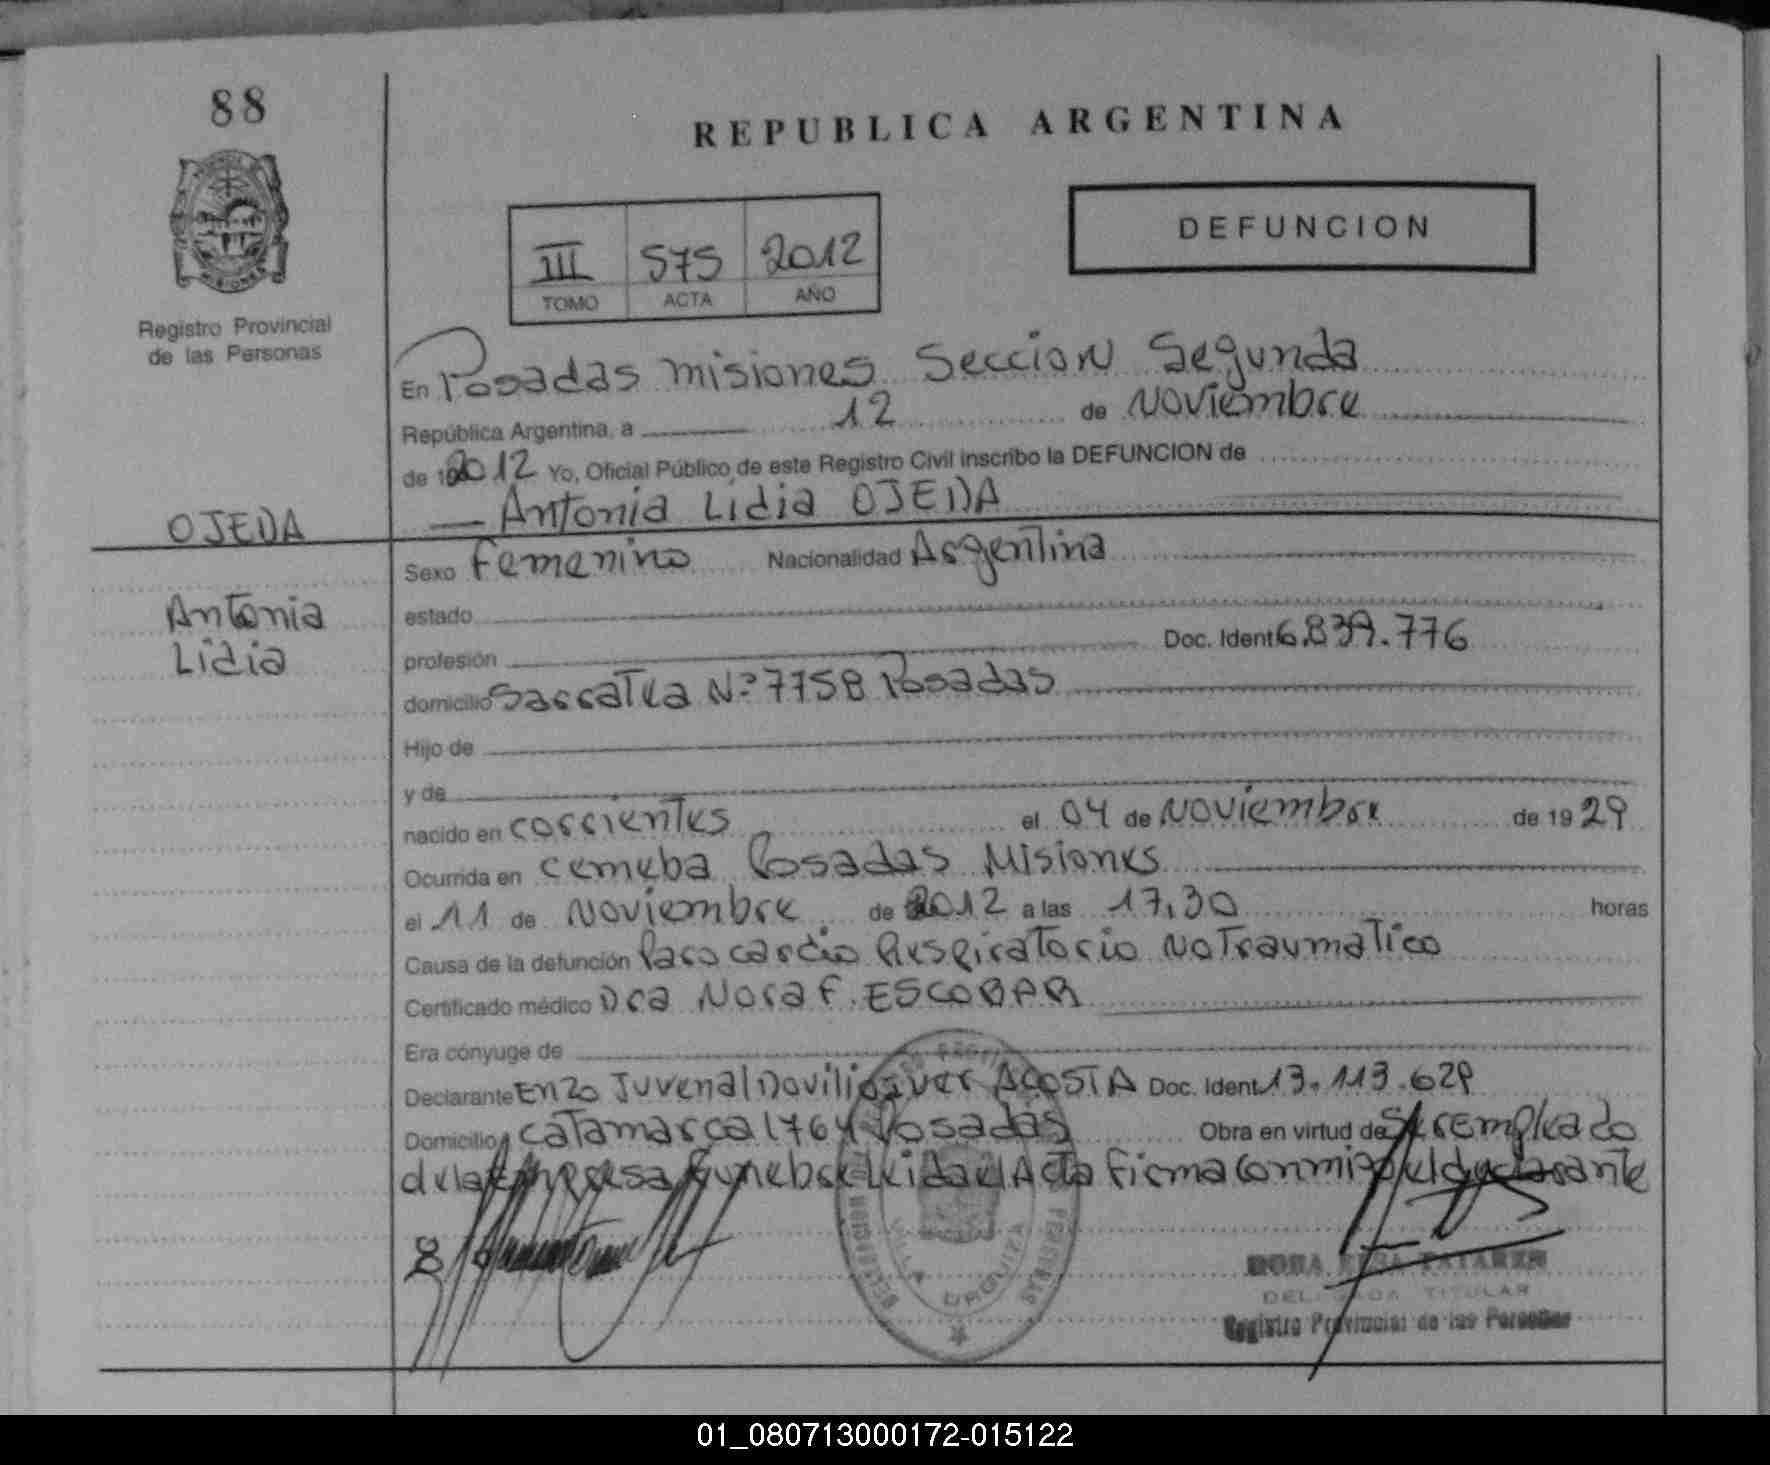 88
REPUBLICA ARGENTINA
DEFUNCION
III 575 2012
TOMO ACTA AÑO
Registro Provincial
de las Personas
En Posadas misiones Seccion Segunda
República Argentina, a 12 de Noviembre
de 2012 Yo, Oficial Público de este Registro Civil inscribo la DEFUNCION de
OJEDA
Antonia Lidia OJEDA
Sexo Femenino Nacionalidad Argentina
Antonia
Lidia
estado
profesión Doc. Ident 6.839.776
domicilio Sarratea N.º 7758 Posadas
Hijo de
y de
nacido en corrientes el 04 de Noviembre de 19 29
Ocurrida en cemeba Posadas Misiones
el 11 de Noviembre de 2012 a las 17,30 horas
Causa de la defunción Paro cardio Respiratorio No Traumatico
Certificado médico Dra Nora F. ESCOBAR
Era cónyuge de
Declarante Enzo Juvenal ACOSTA Doc. Ident 13.113.629
Domicilio catamarca 1764 Posadas Obra en virtud de ser empleado
de la Empresa Funebre Leida el Acta Firma Conmigo el declarante
VILLA URQUIZA
DELEGADA TITULAR
Registro Provincial de las Personas
01_080713000172-015122